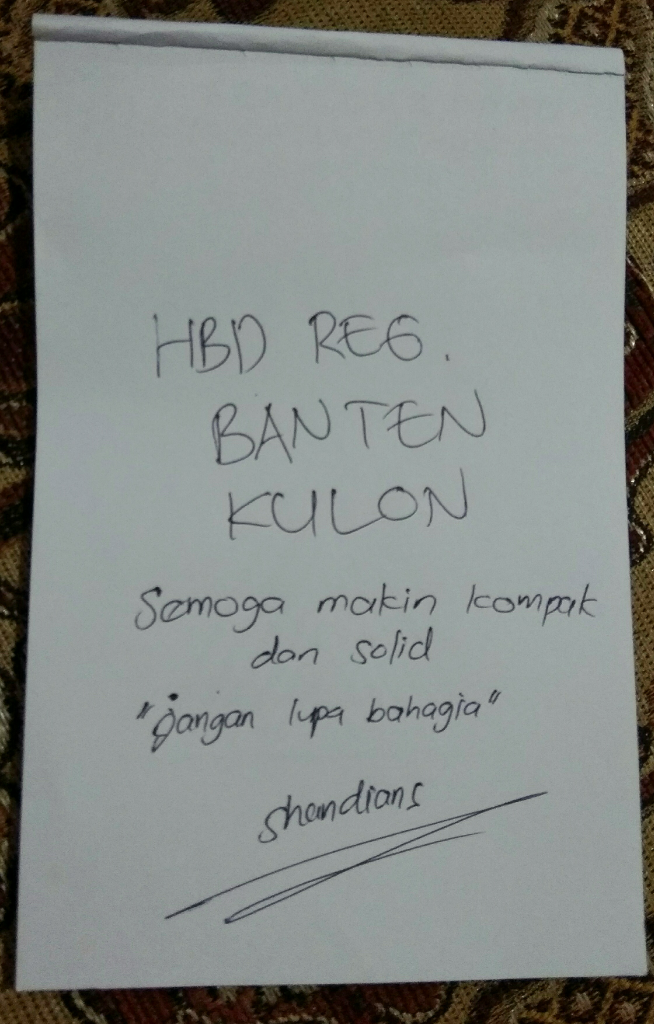 HBD REG.
BANTEN
KULON
Semoga makin kompak
dan solid
"jangan lupa bahagia"
shandians